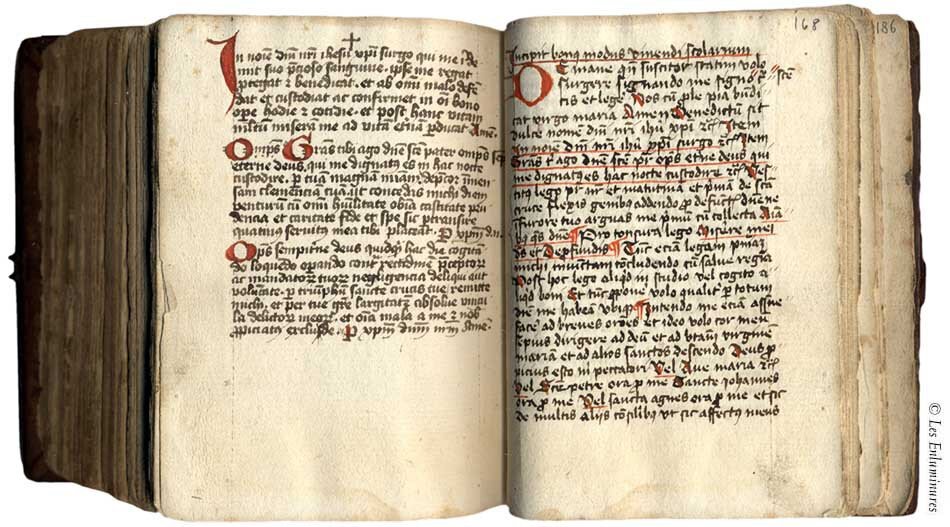 In noīe Dnī nrī ihesu xpi surgo qui me rede
mit suo p̄cioso sanguine. ipse me regat
ptegat et benedicat. et ab omī malo defen
dat et custodiat ac confirmet in oī bono
ope hodie et cotidie. et post hanc vitam
miserā me ad vitā et̄nā pducat Amē.
Omps Gras tibi ago dnē scē pater omps
eterne deus, qui me dignatus es in hac nocte
custodire. p tuā magnā miam, depcor imen
sam clemenciā tuā ut concedas michi diem
venturū cū omī huilitate obiā castitate pu
dencia et caritate fide et spe sic ptransire
quatinus servitus mea tibi placeat. P xpm dn.
Ops sempitne deus quidquid hac die cogitan
do loquēdo opando cont rectitudinē pceptor
ac mandator tuor negligencia deliqui aut
p triumphū sancte crucis tue remitte
michi, et per tue gre largitatē absolve vincla
delictor meor, et om̄ia mala a me et nobis
ppiciatus exclude. P xpm dnum nrm Amē.
168
186
Incipit bonus modus vivendi scolarium
De mane qn suscitor statim volo
surgere signando me signo scē
cis et legere Nos cū ple pia bndi
cat virgo maria Amen Benedictū sit
dulce nomen dnī nrī ihu xpi rc Item
In noīe dnī nrī ihu xpi surgo rc Item
Gras t ago dnē scē pr ops et̄ne deus qui
me dignatus es hac nocte custodire rc Ves
titus lego pr nr et matutinā et p̄mā de scā
cruce flexis genibus addendo p defunctis dnē ne
in furore tuo arguas me p̄mū cū collecta
qs dnē Pro tonsura lego Misere mei
ds et De pfundis Tūc eciā legam p̄mā
michi iniunctam concludendo cū salve regina
Post hoc lego aliquid in studio vel cogito
aliquid boni Et tūc ppone volo qualit p totum
diē me habeā ubique Intendo me eciā assue
facē ad breves orōes et ideo volo cor meū
sepius dirigere ad deū et ad virginē
mariam et ad alios sanctos descendo Deus p
picius esto mi peccatori Vel Ave maria rc
Vel Scē petre ora p me Sancte iohannes
ora p me Vel sancta agnes ora p me et sic
de multis aliis ut sic affectus meus
© Les Enluminures